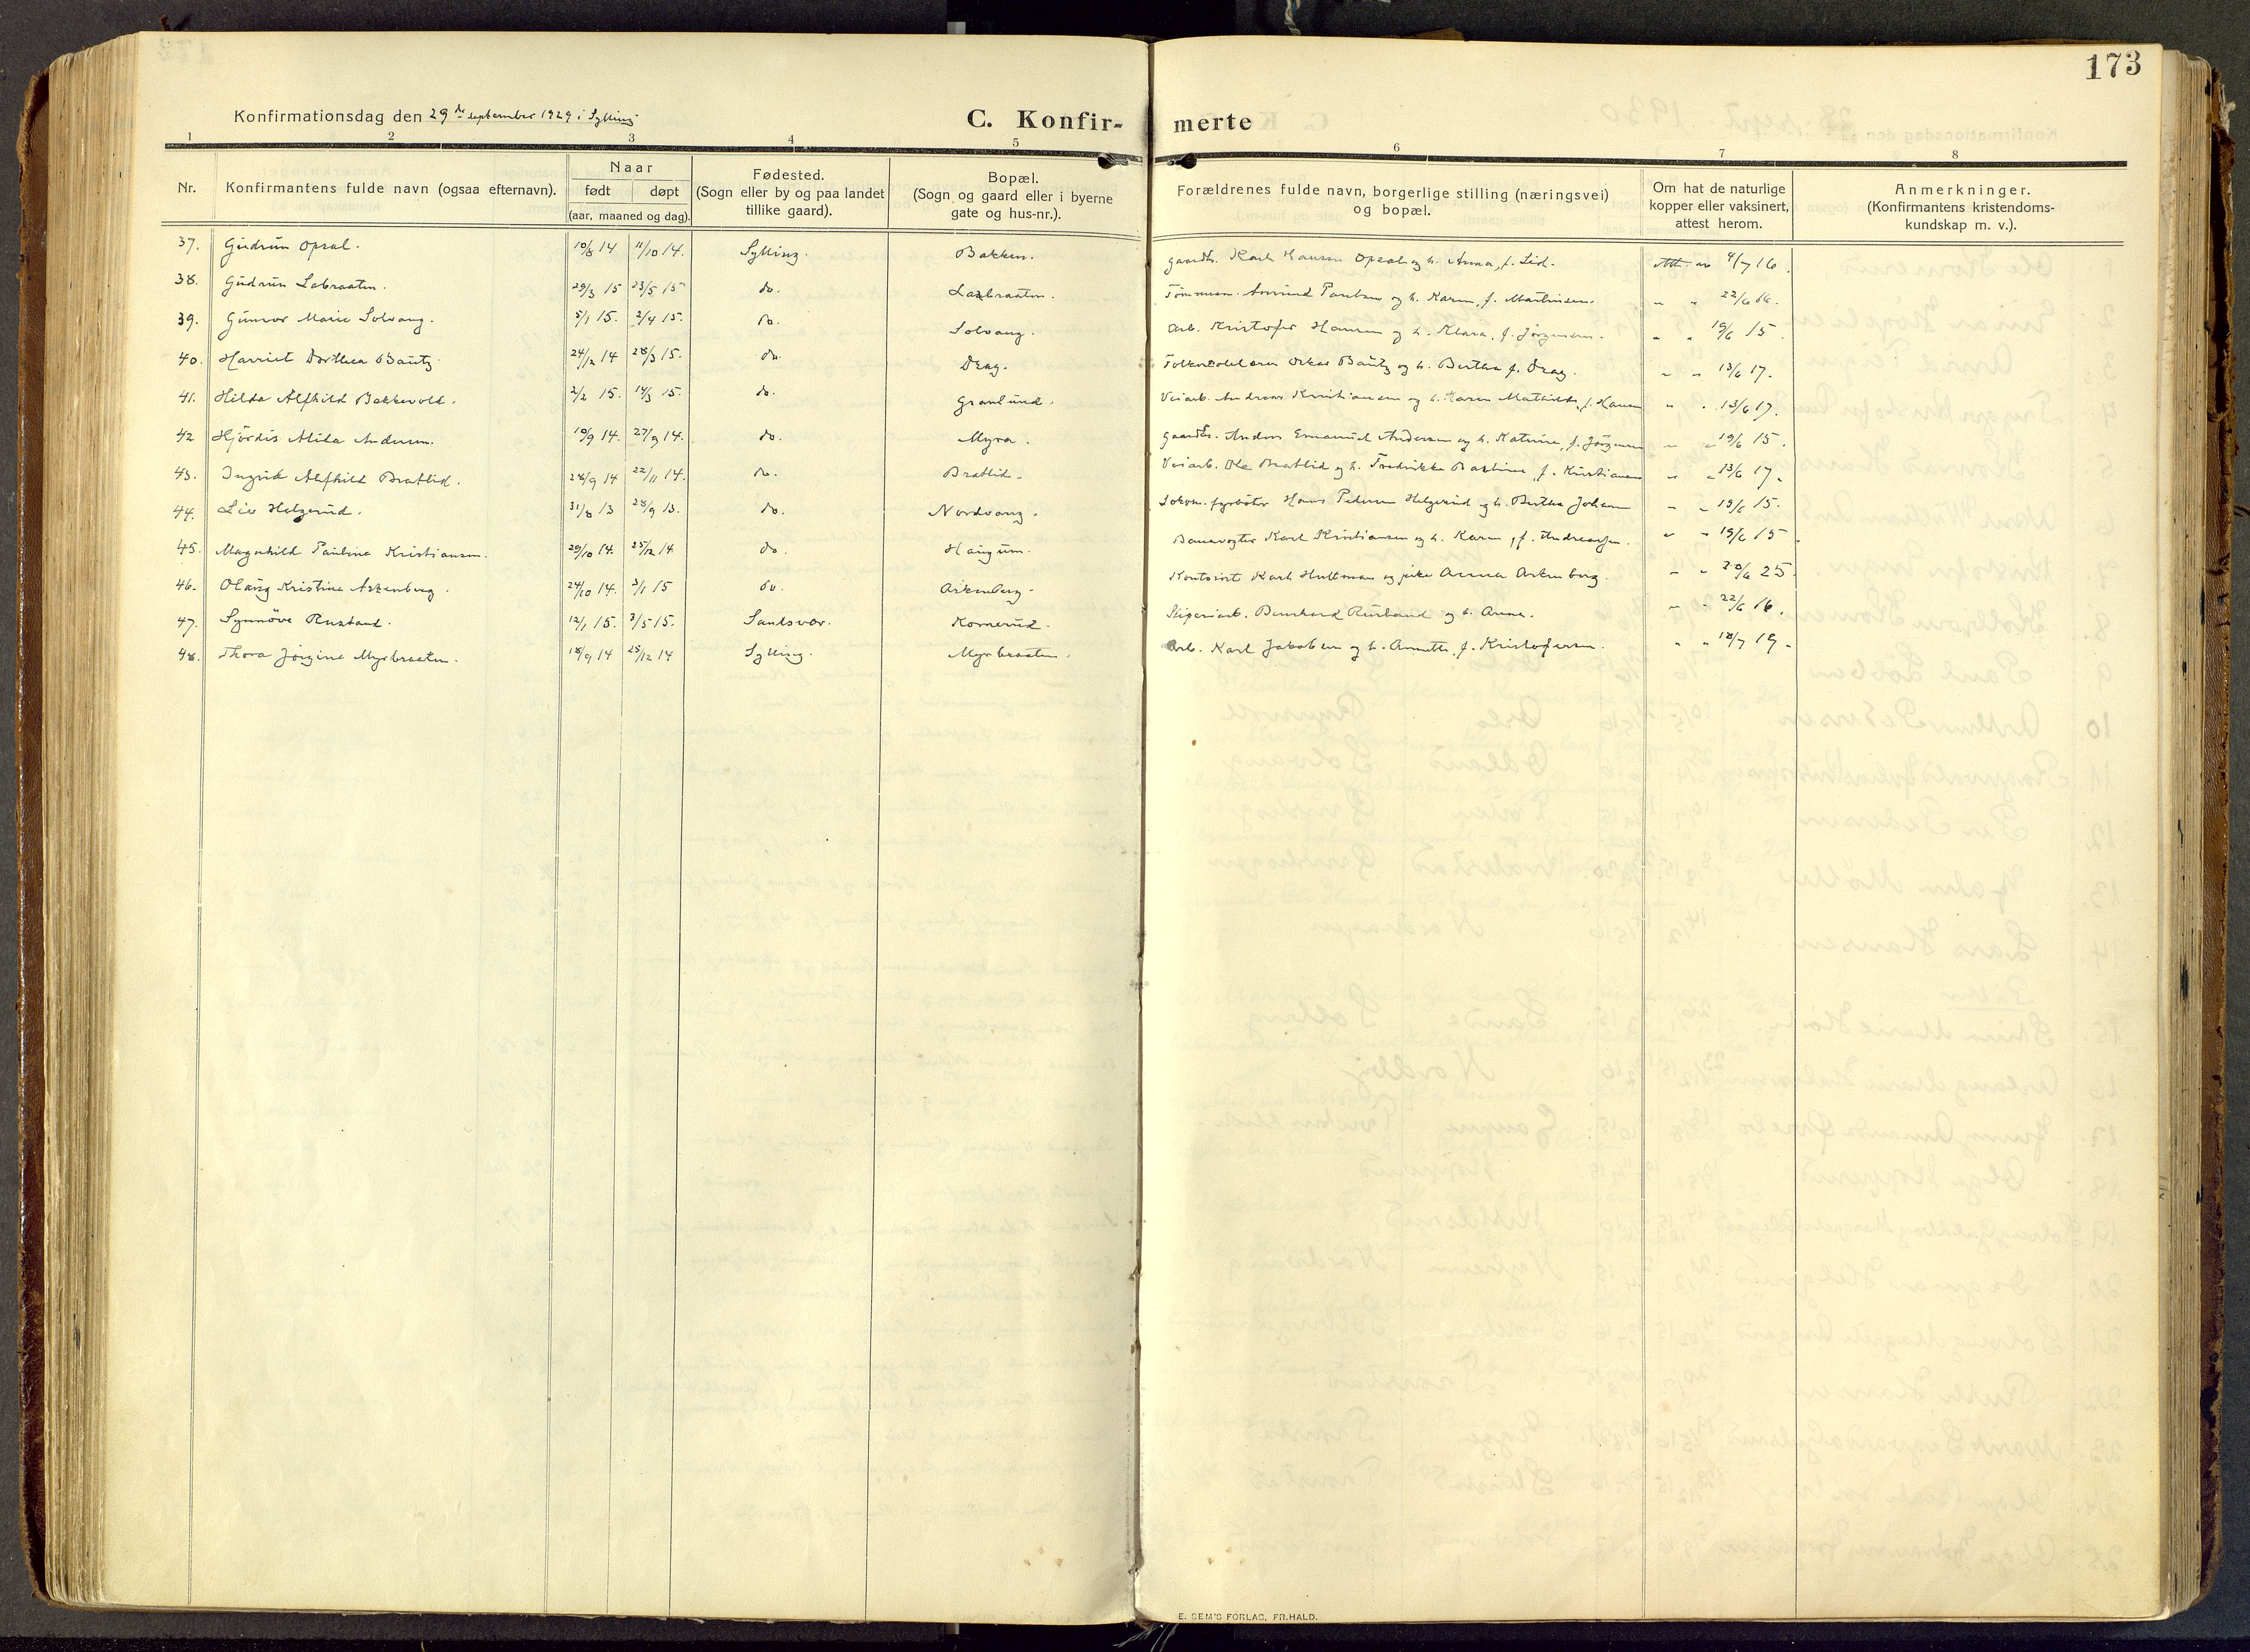 173
Konfirmationsdag den 29de september 1929 i Sylling
C. Konfir- merte
1 2 3 4 5 6 7 8
Nr. Konfirmantens fulde navn (ogsaa efternavn). Naar født døpt (aar, maaned og dag). Fødested. (Sogn eller by og paa landet tillike gaard). Bopæl. (Sogn og gaard eller i byerne gate og hus-nr.). Forældrenes fulde navn, borgerlige stilling (næringsvei) og bopæl. Om hat de naturlige kopper eller vaksinert, attest herom. Anmerkninger. (Konfirmantens kristendoms- kundskap m. v.).
37. Gudrun Opsal. 10/8 14 11/10 14. Sylling. Bakken. Gaardbr. Karl Hansen Opsal og h. Anna, f. Lid. Att. av 4/7 16.
38. Gudrun Labraaten. 29/3 15 23/5 15 do. Labraaten. Tømmerm. Amund Paulsen og h. Karen, f. Martinsen. " " 22/6 16.
39. Gunvor Marie Solvang. 5/1 15. 2/4 15. do. Solvang. Arb. Kristofer Hansen og h. Klara, f. Jörgensen. " " 19/6 15.
40. Harriet Dorthea Bautz. 24/12 14 28/3 15. do. Drag. Folkeskolelærer Oskar Bautz og h. Bertha f. Drag. " " 13/6 17.
41. Hilda Alfhild Bakkevold. 2/2 15. 14/3 15. do. Granlund. Veiarb. Andreas Kristiansen og h. Karen Mathilde, f. Hansen " " 13/6 17.
42 Hjördis Alida Andersen. 10/9 14. 27/9 14. do. Myra. Gaardbr. Anders Emanuel Andersen og h. Katrine, f. Jörgensen " " 19/6 15.
43. Ingrid Alfhild Bratlid. 28/9 14 22/11 14. do. Bratlid. Veiarb. Ole Bratlid og h. Fredrikke Bastine, f. Kristiansen " " 13/6 17.
44. Liv Helgerud. 31/8 13 28/9 13. do. Nordvang. Lokom. fyrbøter Hans Pedersen Helgerud og h. Bertha Johansen " " 19/6 15.
45. Magnhild Pauline Kristiansen. 29/10 14. 25/12 14 do. Haugum. Banevogter Karl Kristiansen og h. Karen, f. Andreassen. " " 19/6 15.
46. Olaug Kristine Askenberg. 24/10 14. 3/1 15 do. Askenberg. Kontorist Karl Hultman og pike Anna Askenberg. " " 20/6 25.
47. Synnöve Rustand. 12/1 15. 3/5 15. Sandsvær. Kornerud. Sliperiarb. Bernhard Rustand og h. Anna. " " 22/6 16.
48. Thora Jörgine Myrbraaten. 18/9 14 25/12 14 Sylling. Myrbraaten. Arb. Karl Jakobsen og h. Annette, f. Kristofersen. " " 18/7 19.
E. SEM'S FORLAG, FR.HALD.